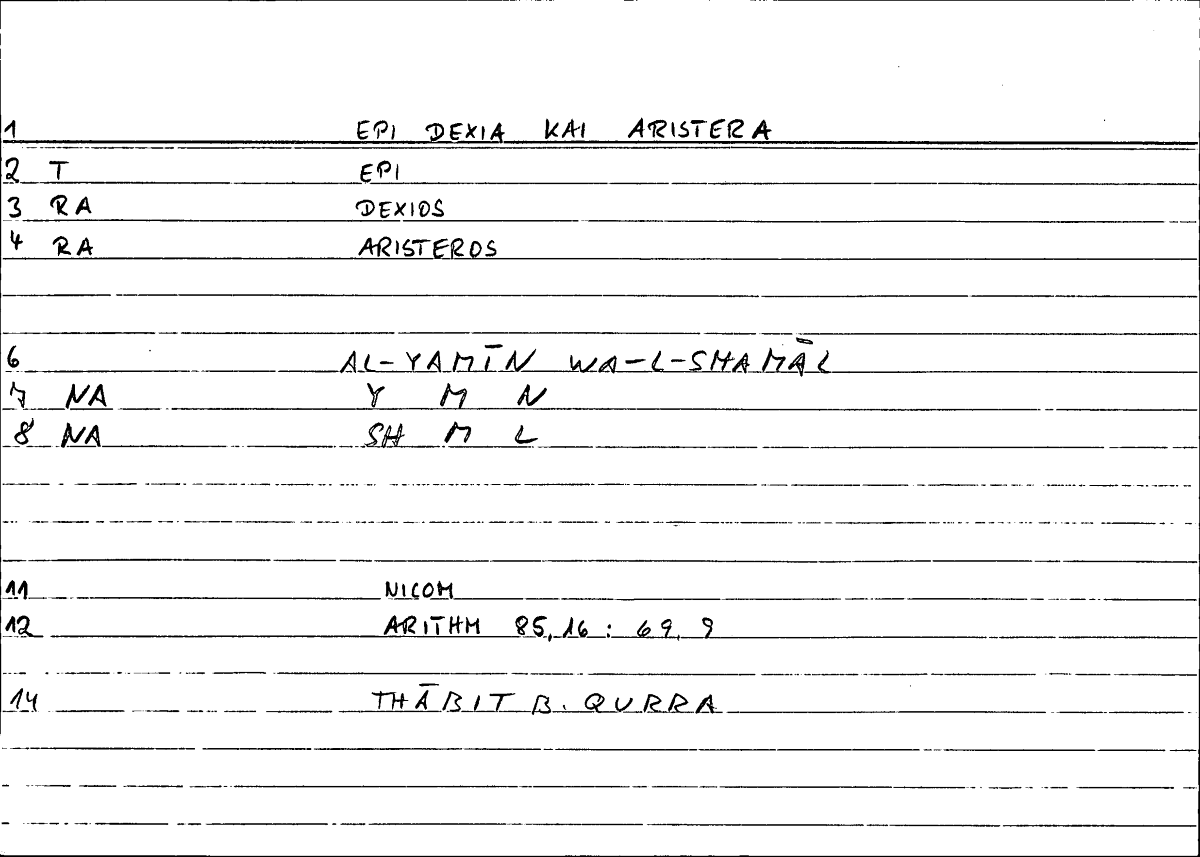 1 EPI DEXIA KAI ARISTERA
2 T EPI
3 RA DEXIOS
4 RA ARISTEROS
6 AL-YAMĪN WA-L-SHAMĀL
7 NA Y M N
8 NA SH M L
11 NICOM
12 ARITHM 85,16 : 69,9
14 THĀBIT B. QURRA